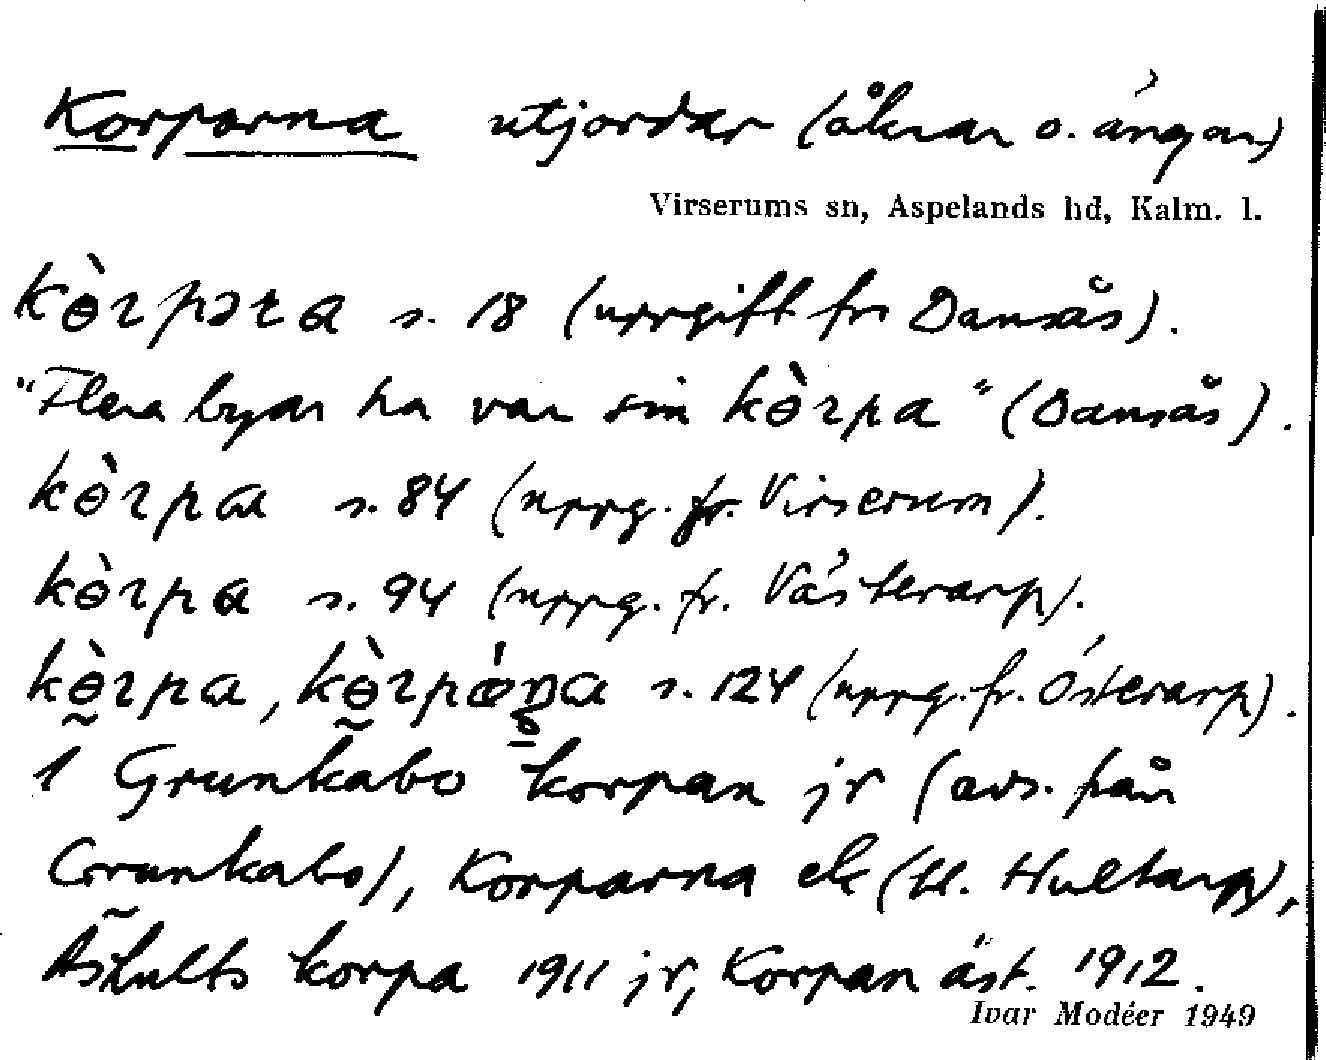 Korparna utjordar (åkrar o. ängar)
Virserums sn, Aspelands hd, Kalm. l.
kɵ̀rpɔra s. 18 (uppgift fr Dansås).
"Flera byar ha var sin kɵ̀rpa" (Dansås).
kɵ̀rpa s. 84 (uppg. fr. Virserum).
kɵ̀rpa s. 94 (uppg. fr. Västerarp).
kɵ̀rpa, s. 124 (uppg. fr. Österarp).
1 Grunkabo korpan jr (avs. från
Grunkabo), Korparna ek (t. Hultarp),
Åshults korpa 1911 jr, Korpan äst. 1912.
Ivar Modéer 1949